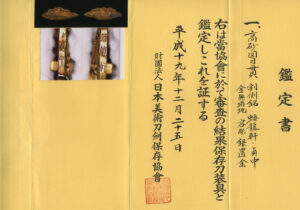 鑑定書
一、高砂図目貫 割際銘 蟠龍軒 貞中
金無垢地 容彫 鑢置金
右は當協會に於て審査の結果保存刀装具と
鑑定しこれを証する
平成十九年十二月二十五日
財團法人日本美術刀剣保存協會